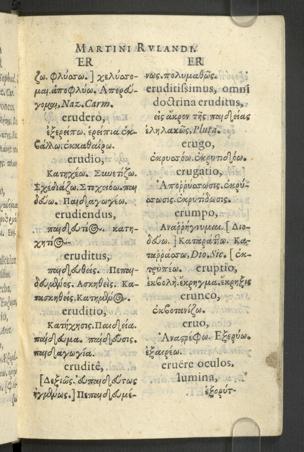 MARTINI RVLANDI.
ER
ζω. φλύσσω.] χελύσσο-
μαι. ἀποφλύω. Ἀπερδύ-
γομαι, Naz. Carm.
erudero,
ἐξερείπω. ἐρείπια ἐκ-
βάλλω. ἐκκαθαίρω.
erudio,
Κατηχέω. Συνετίζω.
Σχεδιάζω. Στοιχειόω. παι
δεύω. Παιδαγωγέω.
erudiendus,
παιδευτέος. κατη-
χητέος.
eruditus,
παιδευθείς. Πεπαι-
δευμένος. Ἀσκηθείς. Κα-
τασκηθείς. Κατηχημένος.
eruditio,
Κατήχησις. Παιδεία.
παίδευμα. παίδευσις.
παιδαγωγία.
eruditè,
[Δεξιῶς. εὐπαιδεύτως
Πεπαιδευμέ-
ER
νως. πολυμαθῶς.
eruditissimus, omni
doctrina eruditus,
εἰς ἄκρον τῆς παιδείας
ἐληλακώς. Pluta.
erugo,
erugatio,
erumpo,
Ἀναρρήγνυμαι. [Διο-
δεύω.] Καταρράττω. Κα-
ταρράσσω. Dio. Sic. [ἐκ-
τρύπτω. eruptio,
ἐκβολή. ἔκρηγμα. ἔκρηξις
erunco,
ἐκβοτανίζω.
eruo,
Ἀνατρέφω. Ἐξερύω.
ἐξαιρέω.
eruere oculos,
lumina,
ἐξορύτ-